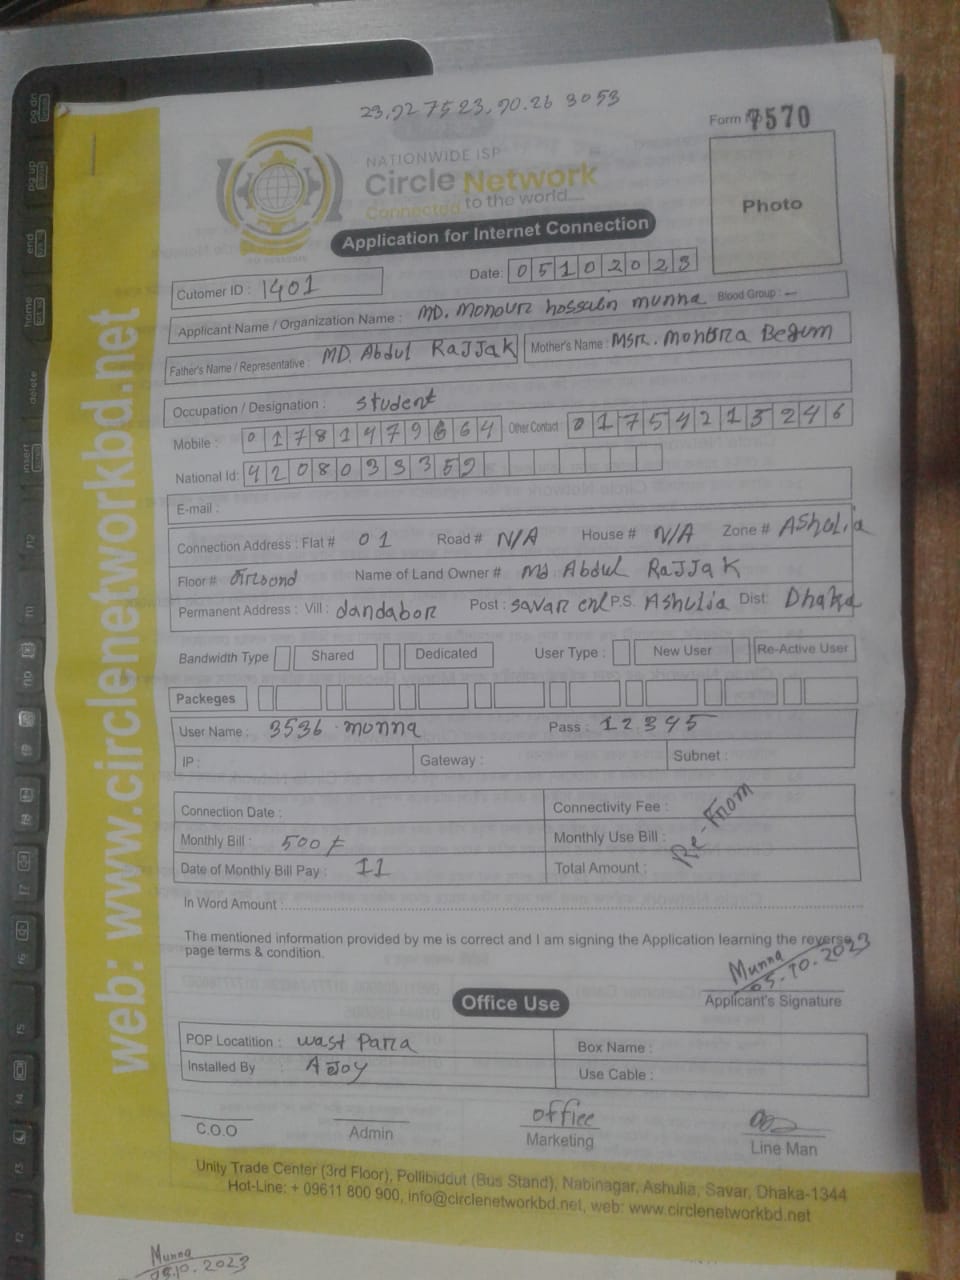 23.92 7523.90.26 3053
Form No 7570
NATIONWIDE ISP
Circle Network
Connected to the world....
Photo
Application for Internet Connection
Cutomer ID : 1401
Date: 05102023
Applicant Name / Organization Name : MD. Monour hossain munna Blood Group : —
Father's Name / Representative : MD. Abdul RaJJaK Mother's Name : Msr. monora Begum
Occupation / Designation : Student
Mobile : 01781479664 Other Contact 01754213246
National Id: 4208033352
E-mail :
Connection Address : Flat # 01 Road # N/A House # N/A Zone # AShulia
Floor # Name of Land Owner # Md Abdul RaJJaK
Permanent Address : Vill : dandabor Post : Savar P.S. Ashulia Dist: Dhaka
Bandwidth Type Shared Dedicated User Type : New User Re-Active User
Packeges
User Name : 3536 munna Pass : 12345
IP : Gateway : Subnet :
Connection Date : Connectivity Fee :
Monthly Bill : 500 Monthly Use Bill :
Date of Monthly Bill Pay : 11 Total Amount :
Re-From
In Word Amount
The mentioned information provided by me is correct and I am signing the Application learning the reverse
page terms & condition.
Munna
05.10.2023
Applicant's Signature
Office Use
POP Locatition : wast Para Box Name :
Installed By : AJoy Use Cable :
office
C.O.O Admin Marketing Line Man
Unity Trade Center (3rd Floor), Pollibiddut (Bus Stand), Nabinagar, Ashulia, Savar, Dhaka-1344
Hot-Line: + 09611 800 900, info@circlenetworkbd.net, web: www.circlenetworkbd.net
web: www.circlenetworkbd.net
Munna
05.10.2023